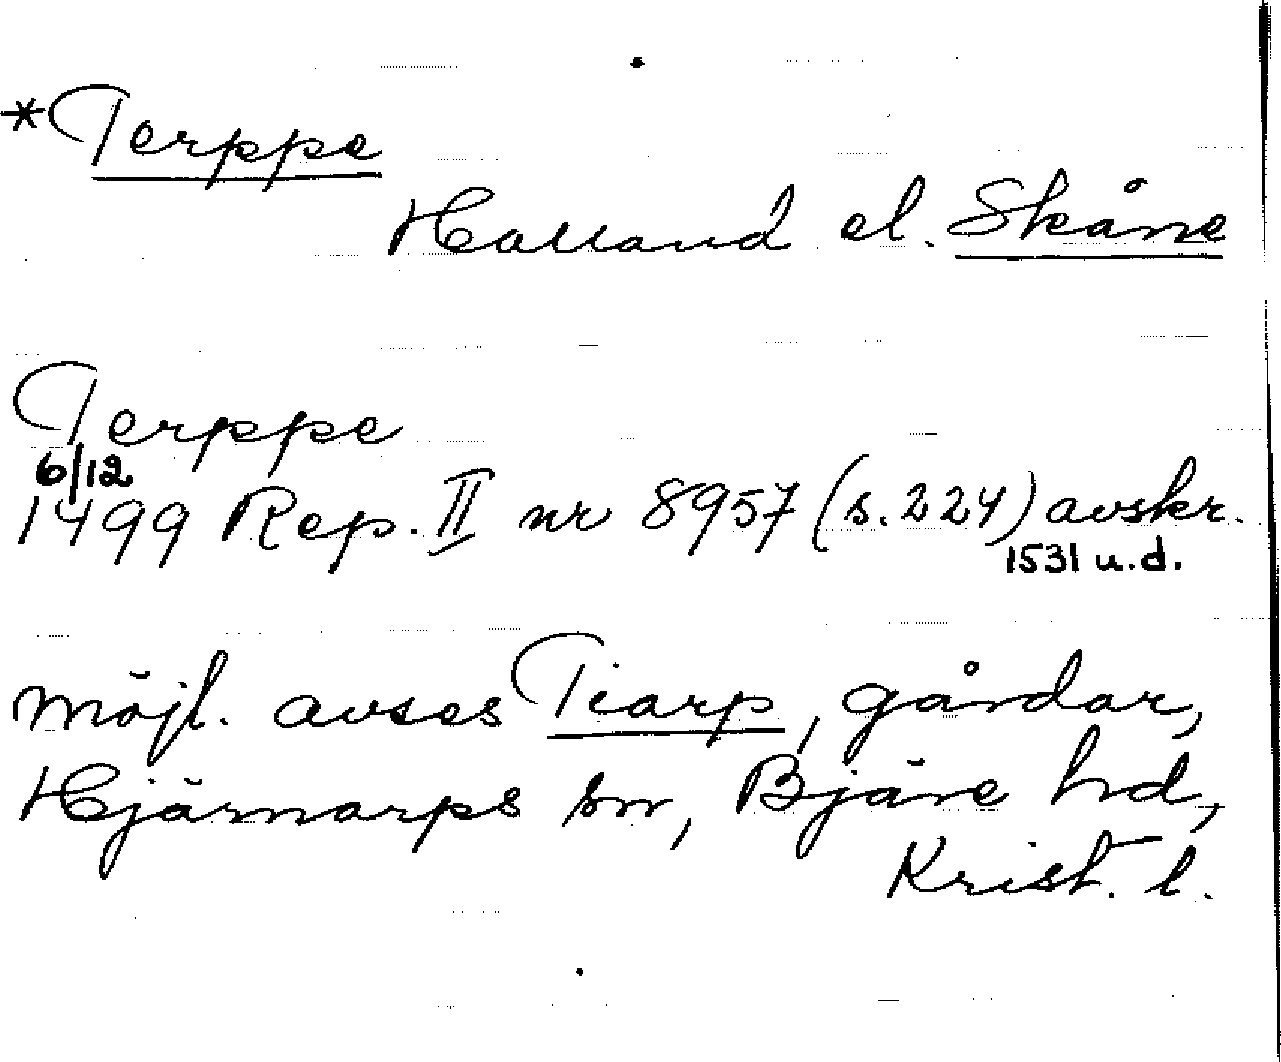 *Terppe
Halland el. Skåne
Terppe
6/12
1499 Rep. II nr 8957 (s. 224) avskr.
1531 u.d.
möjl. avses Tiarp, gårdar,
Hjärnarps sn, Bjäre hd,
Krist. l.